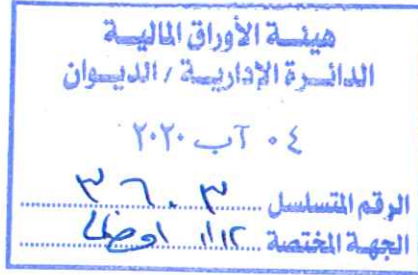 هيئة الأوراق المالية
الدائرة الإدارية / الديوان
٠٤ آب ٢٠٢٠
الرقم المتسلسل ٣٦٠٣
الجهة المختصة ١١/١٢